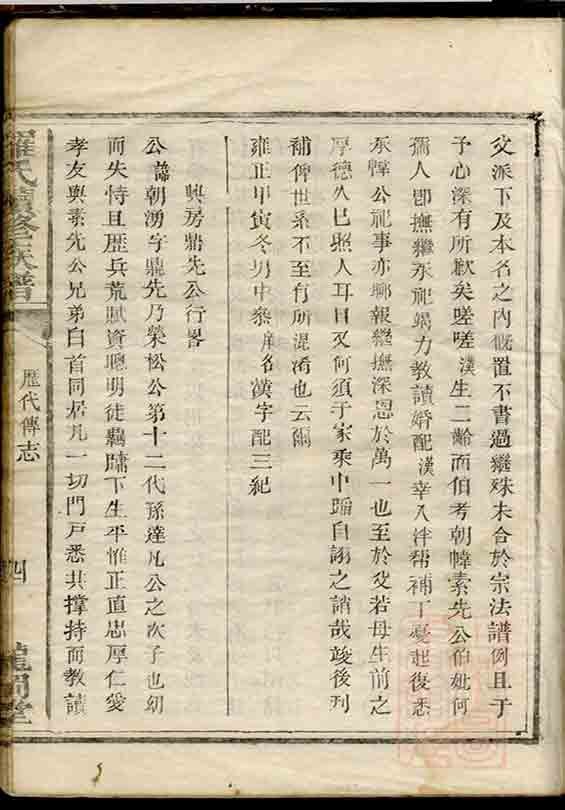 父派下及本名之内慨置不書過繼殊未合於宗法譜例且于
予心深有所歉矣嗟嗟漢生二齡而伯考朝幃素先公伯妣何
孺人卽撫繼承祀竭力教讀婚配漢幸入泮幇補丁憂起復悉
承幃公祀事亦聊報繼撫深恩於萬一也至於父若母生前之
厚德久已照人耳目又何須于家乘中蹈自詡之誚哉竣後刋
補俾世系不至有所混淆也云爾
雍正甲寅冬男中泰庠名漢字配三紀
興房鼎先公行畧
公諱朝湧字鼎先乃榮松公第十二代孫達凡公之次子也幼
而失恃且歷兵荒賦資聰明徒羈牖下生平惟正直忠厚仁愛
孝友與素先公兄弟白首同居凡一切門戸悉共撑持而教讀
羅氏續修族譜
歷代傳志
四